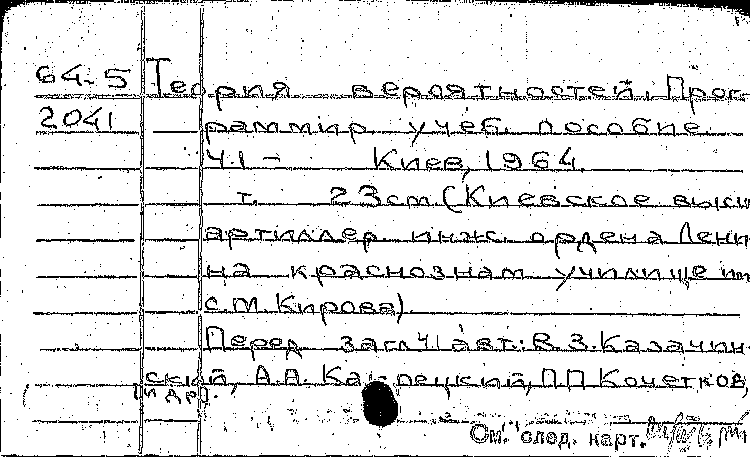 64-5 Теория вероятностей. Прог-
2041 раммир. учеб. пособие.
Ч.1 - Киев, 1964.
т. 23см. (Киевское высш
артиллер. инж. ордена Лени
на краснознам училище им
С.М. Кирова).
Перед загл ч1 авт.: В.З. Казачин-
ский, А.А. П.П Кочетков,
[и др].
См. след. карт.